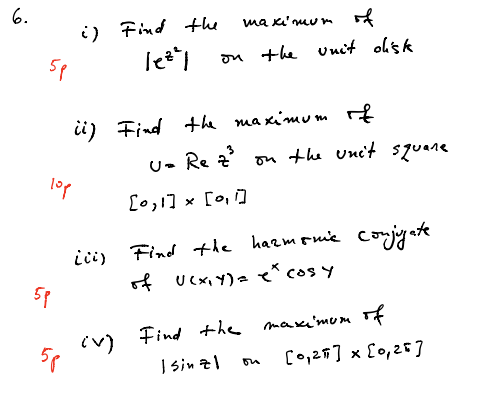 6.
i) Find the maximum of
5p
|e^{z^2}| on the unit disk
ii) Find the maximum of
u = Re z^3 on the unit square
10p
[0,1] x [0,1]
iii) Find the harmonic conjugate
5p
of u(x,y) = e^x cos y
iv) Find the maximum of
5p
|sin z| on [0,2π] x [0,2π]